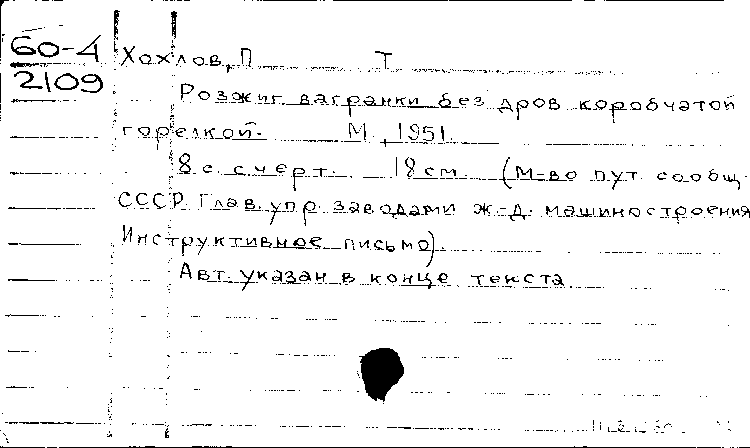 60-4
2109
Хохлов, П Т
Розжиг вагранки без дров коробчатой
горелкой. М., 1951.
8 с. с черт. 18 см. (М-во пут. сообщ.
СССР. Глав. упр. заводами ж.-д. машиностроения
Инструктивное письмо).
Авт. указан в конце текста